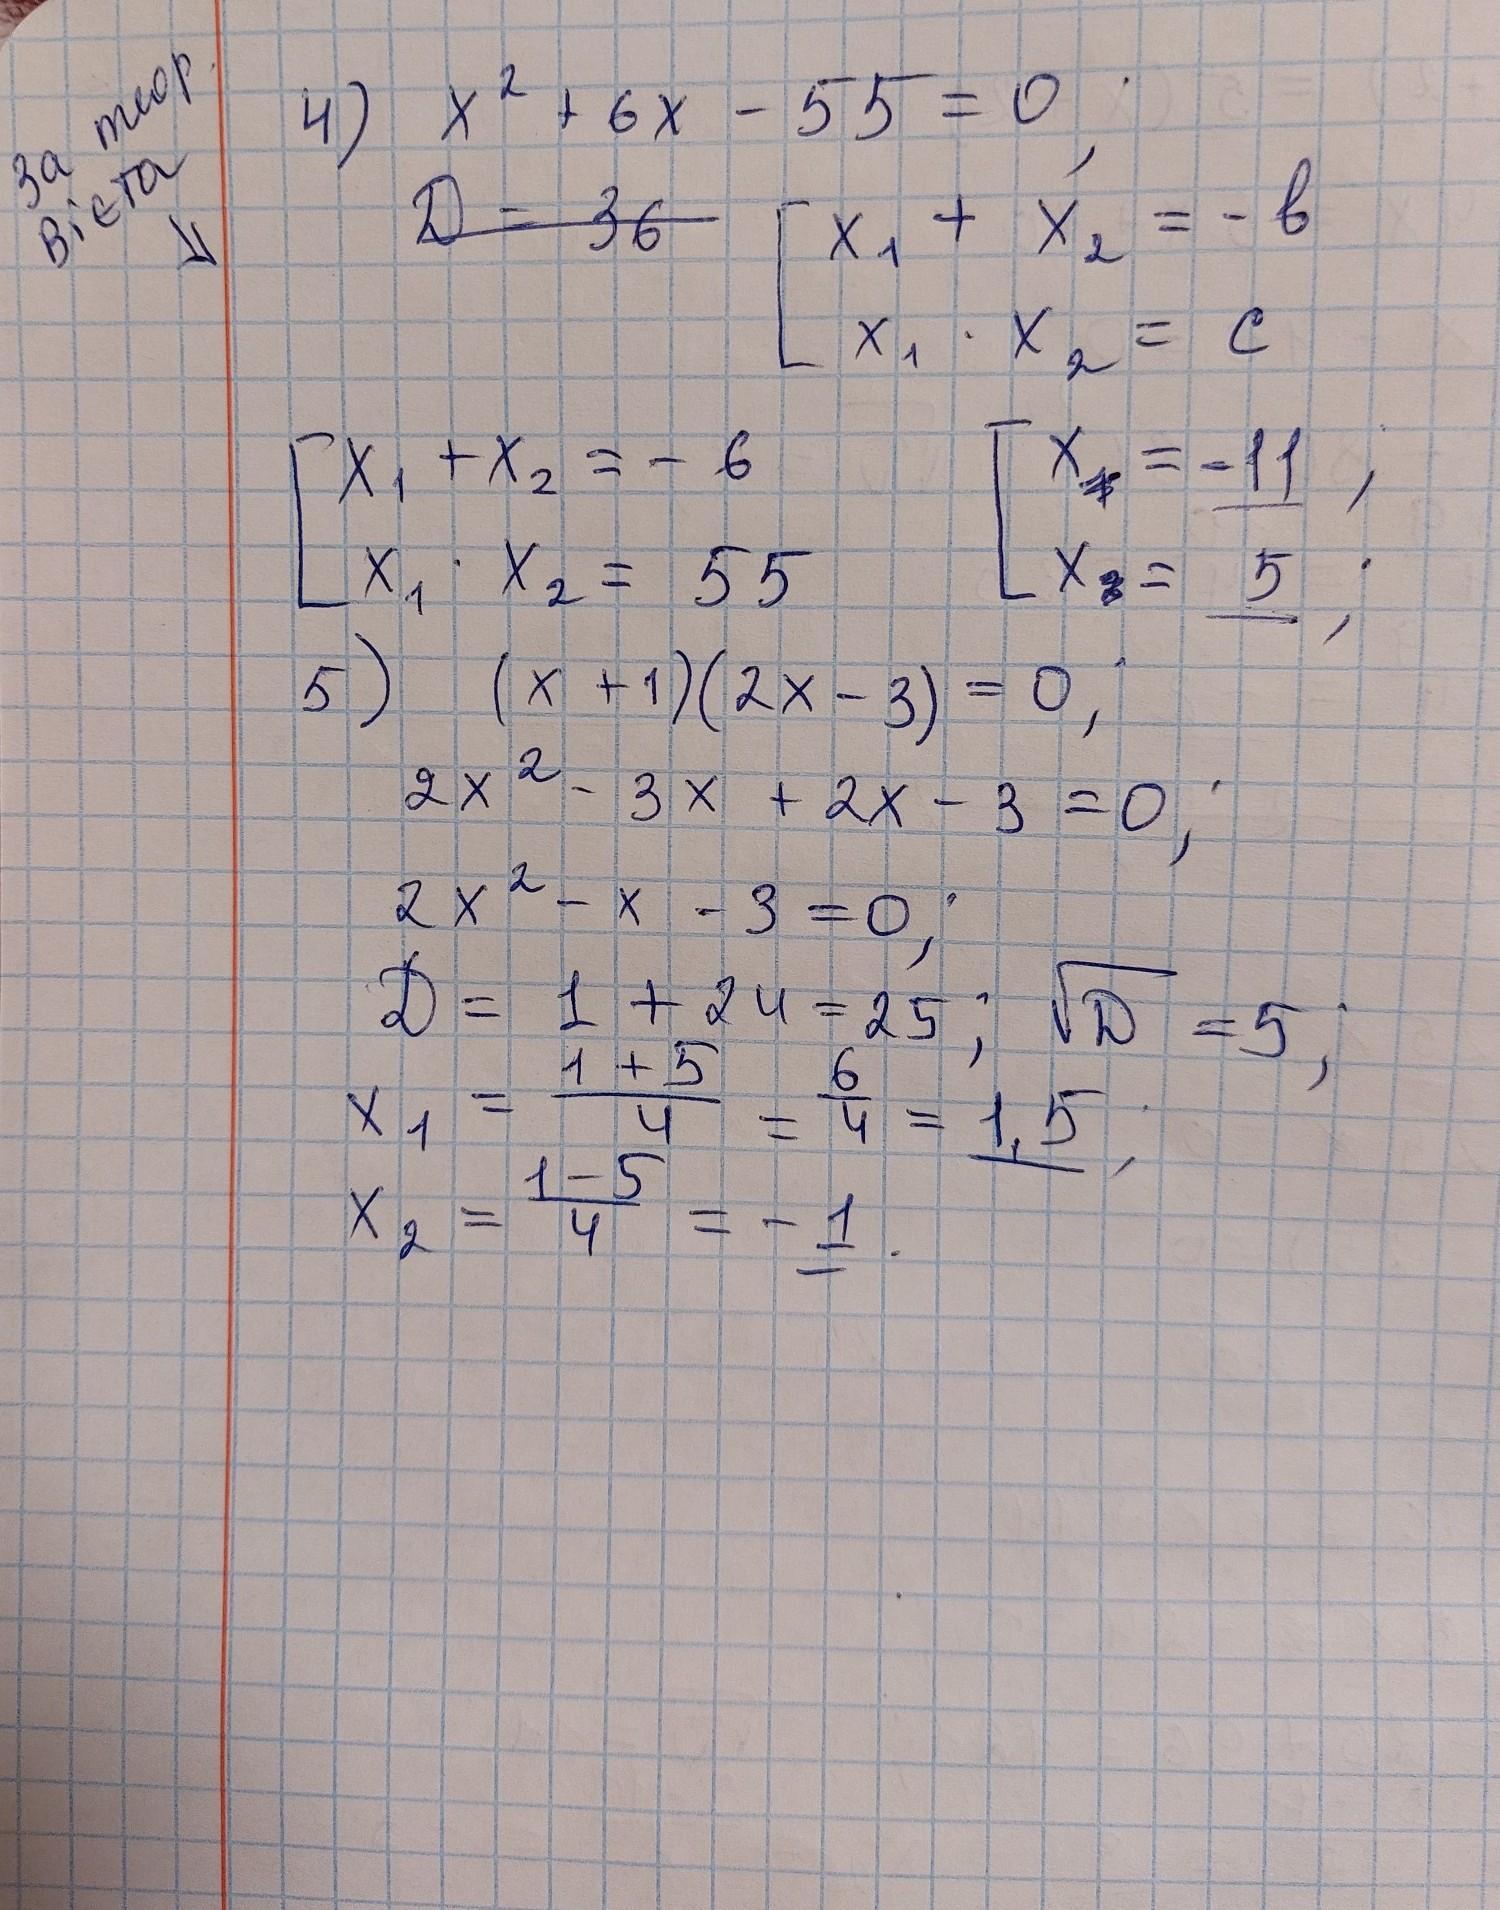 За теор.
Вієта
4) x² + 6x - 55 = 0;
D = 36
[ x₁ + x₂ = - b
x₁ · x₂ = c
[ x₁ + x₂ = - 6
x₁ · x₂ = 55
[ x₁ = -11;
x₂ = 5;
5) (x + 1)(2x - 3) = 0;
2x² - 3x + 2x - 3 = 0;
2x² - x - 3 = 0;
D = 1 + 24 = 25; √D = 5;
x₁ = (1 + 5)/4 = 6/4 = 1,5;
x₂ = (1 - 5)/4 = - 1.